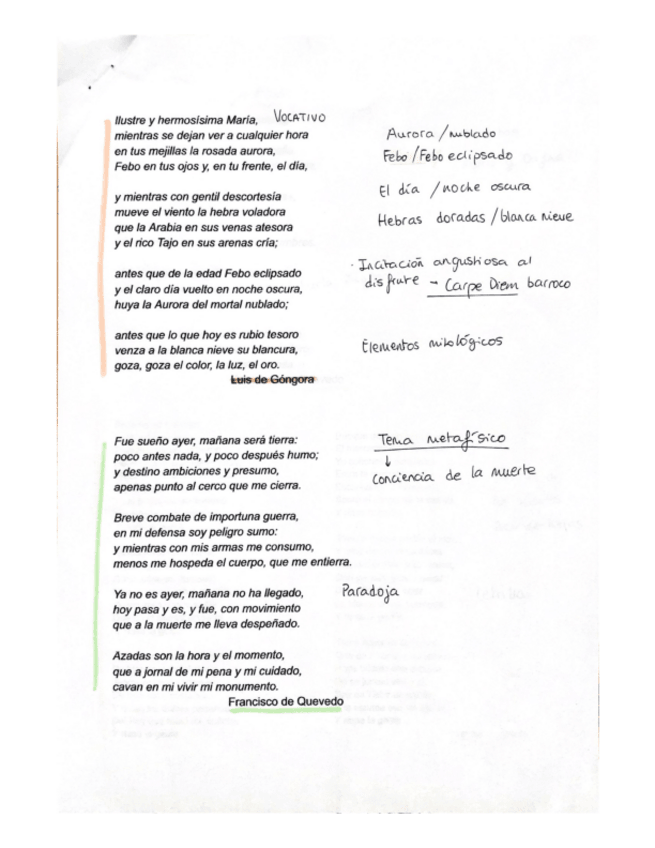 Ilustre y hermosísima María, VOCATIVO
mientras se dejan ver a cualquier hora
en tus mejillas la rosada aurora,
Febo en tus ojos y, en tu frente, el día,
Aurora / nublado
Febo / Febo eclipsado
y mientras con gentil descortesía
mueve el viento la hebra voladora
que la Arabia en sus venas atesora
y el rico Tajo en sus arenas cría;
El día / noche oscura
Hebras doradas / blanca nieve
antes que de la edad Febo eclipsado
y el claro día vuelto en noche oscura,
huya la Aurora del mortal nublado;
· Incitación angustiosa al
disfrute → Carpe Diem barroco
antes que lo que hoy es rubio tesoro
venza a la blanca nieve su blancura,
goza, goza el color, la luz, el oro.
Elementos mitológicos
Luis de Góngora
Fue sueño ayer, mañana será tierra:
poco antes nada, y poco después humo;
y destino ambiciones y presumo,
apenas punto al cerco que me cierra.
Tema metafísico
↓
conciencia de la muerte
Breve combate de importuna guerra,
en mi defensa soy peligro sumo:
y mientras con mis armas me consumo,
menos me hospeda el cuerpo, que me entierra.
Ya no es ayer, mañana no ha llegado, Paradoja
hoy pasa y es, y fue, con movimiento
que a la muerte me lleva despeñado.
Azadas son la hora y el momento,
que a jornal de mi pena y mi cuidado,
cavan en mi vivir mi monumento.
Francisco de Quevedo